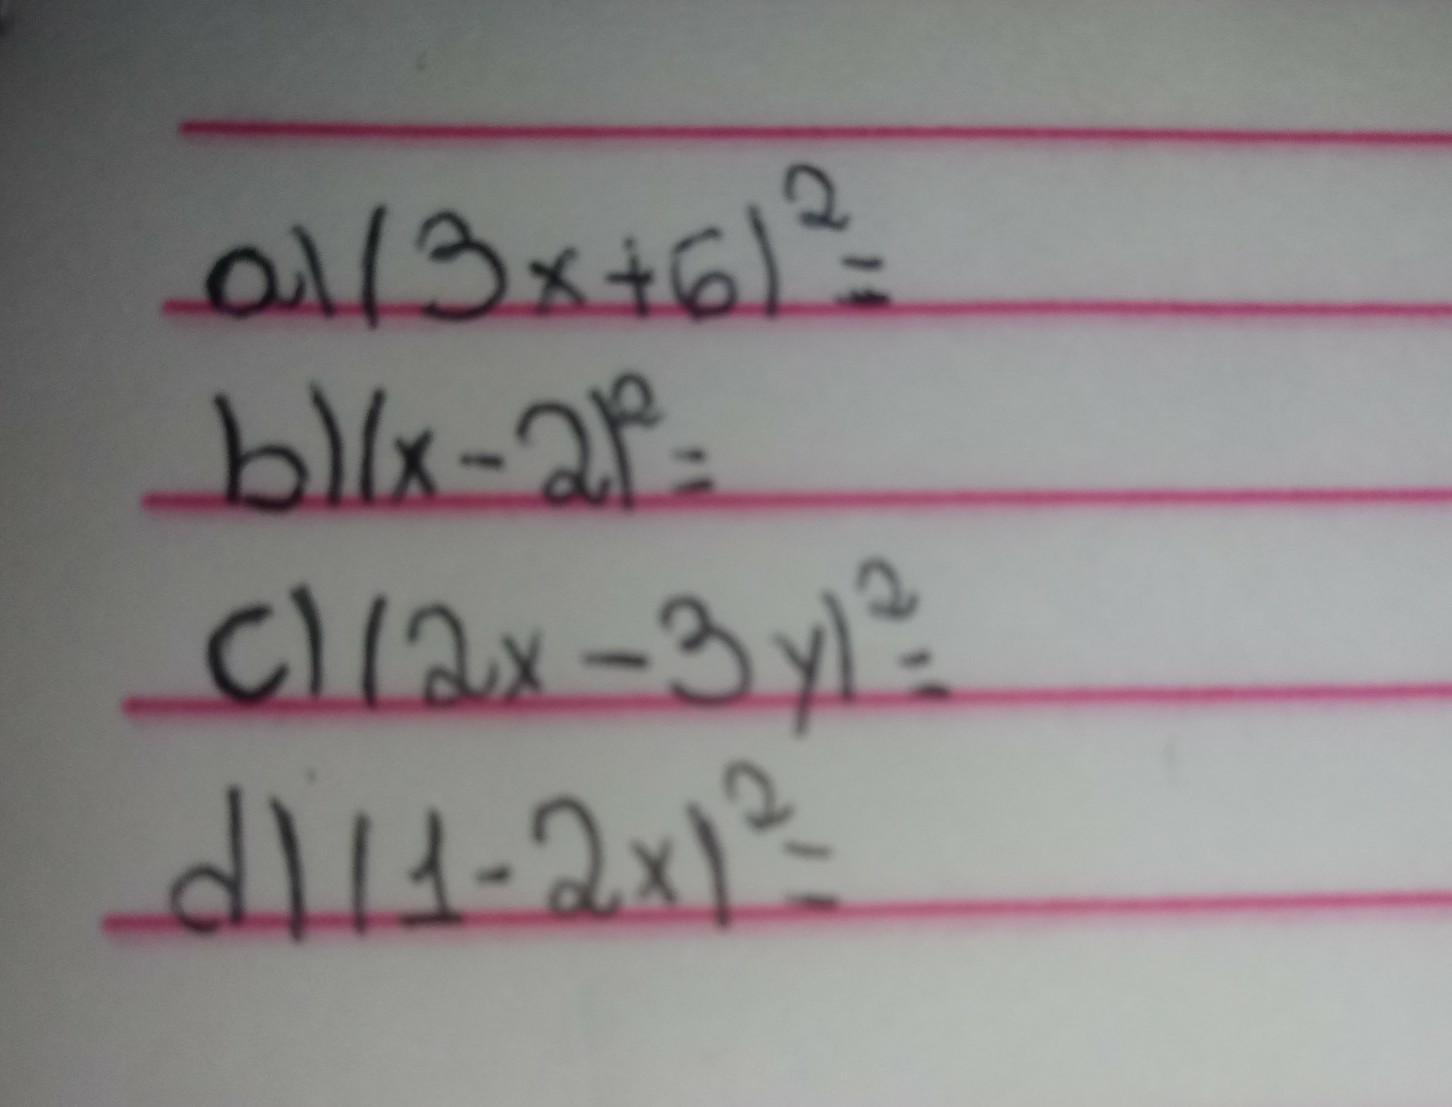 a) (3x+5)²=
b) (x-2)²=
c) (2x-3y)²=
d) (1-2x)²=